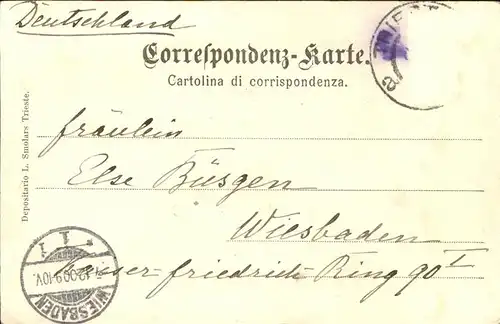 Deutschland
TRIEST
Correspondenz-Karte.
Cartolina di corrispondenza.
Depositario L. Smolars Trieste.
Fräulein
Else Büsgen
Wiesbaden
Kaiser-Friedrich-Ring 90 I
* 1 1
12.00.9-10V.
WIESBADEN